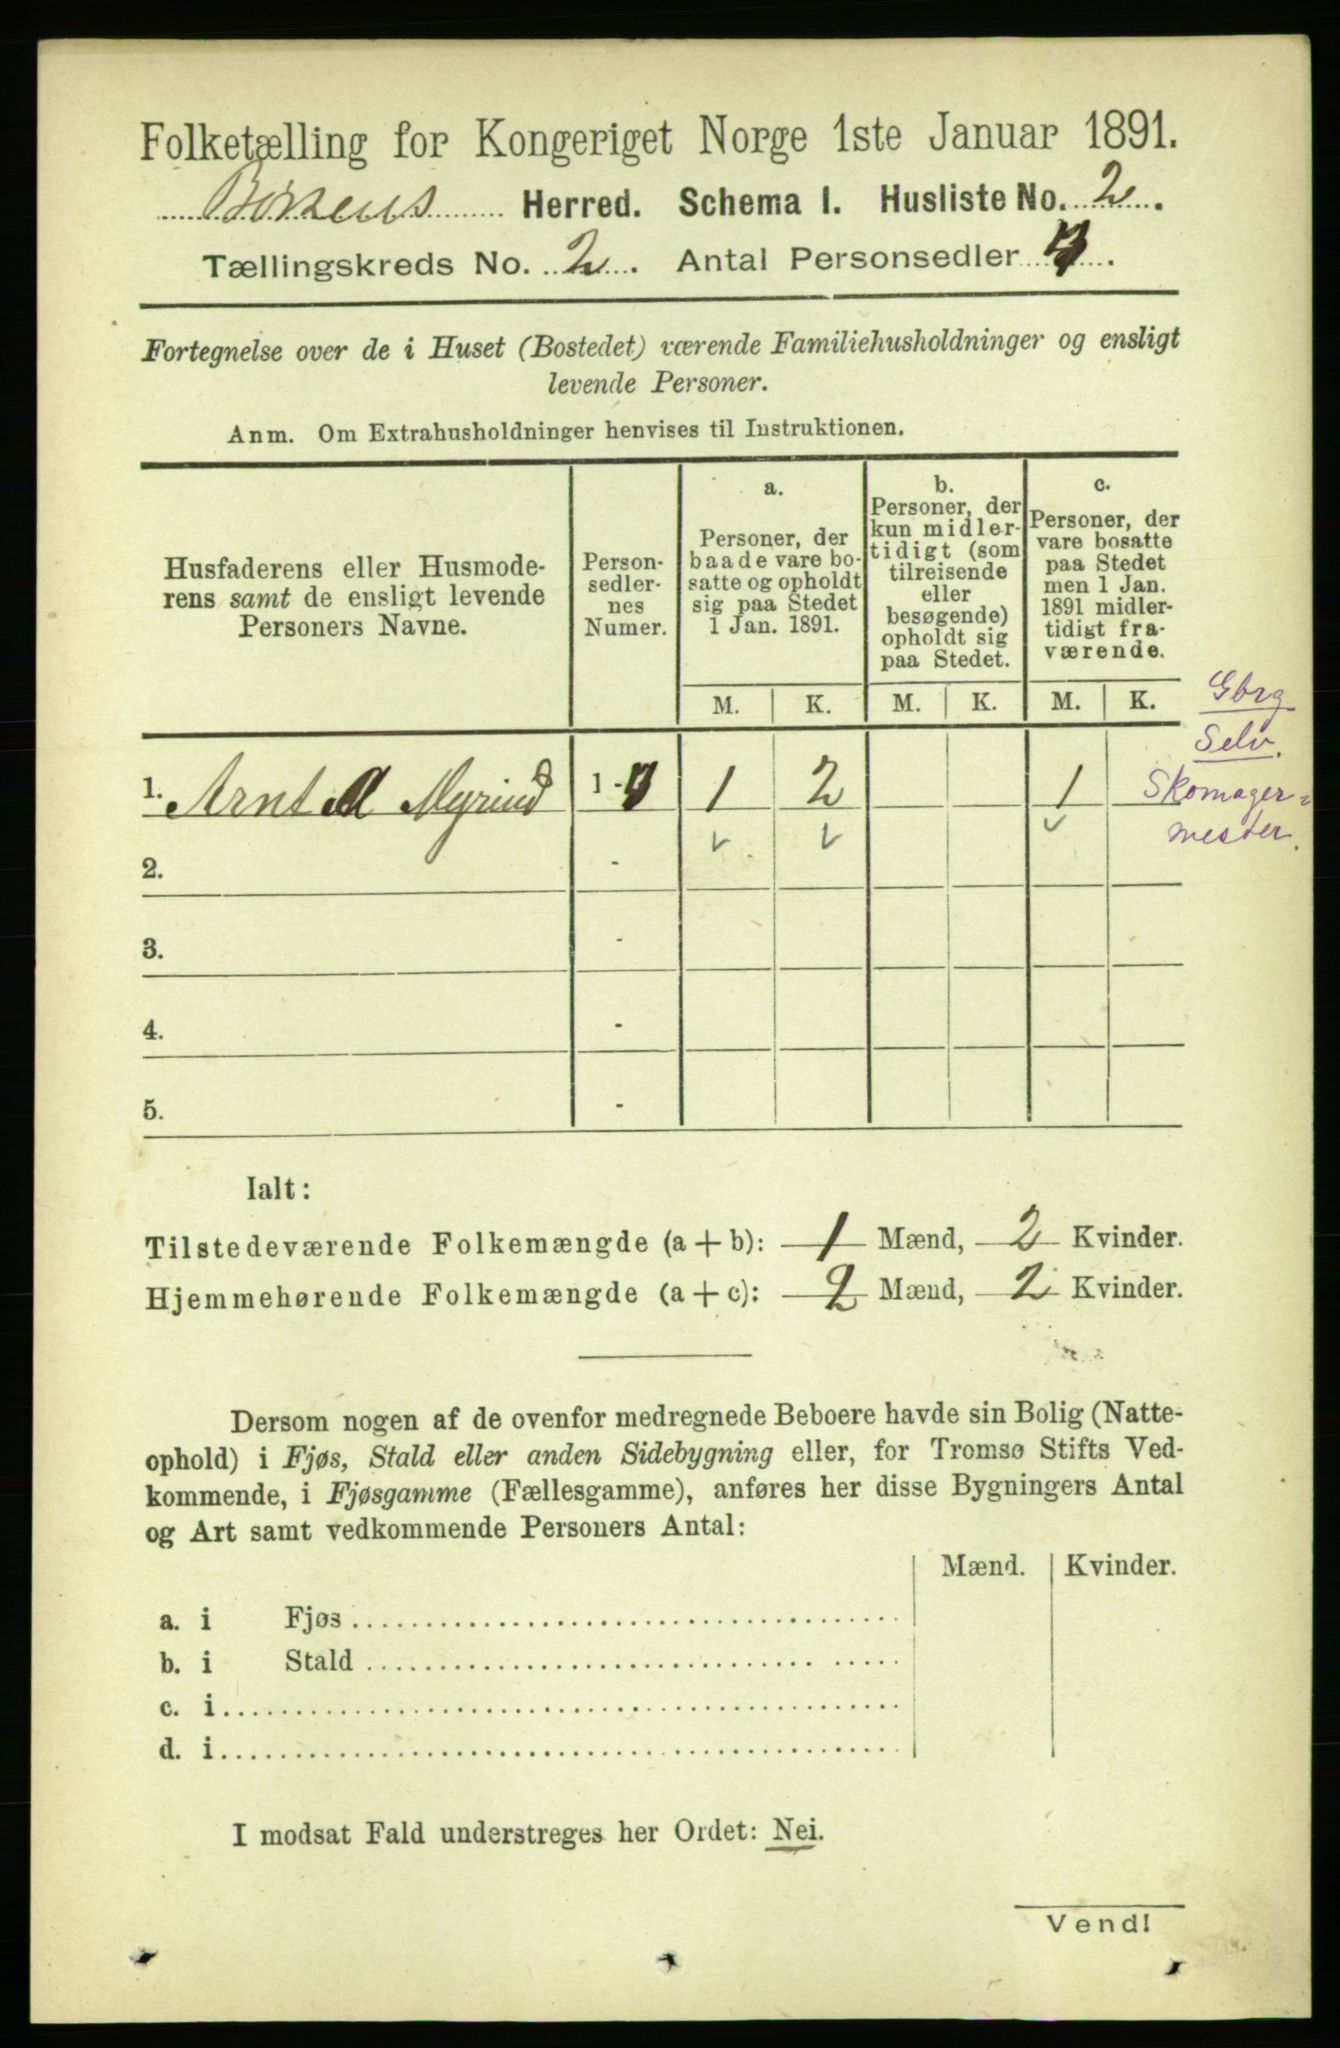 Folketælling for Kongeriget Norge 1ste Januar 1891.
Børsens Herred. Schema I. Husliste No. 2.
Tællingskreds No. 2. Antal Personsedler
Fortegnelse over de i Huset (Bostedet) værende Familiehusholdninger og ensligt
levende Personer.
Anm. Om Extrahusholdninger henvises til Instruktionen.
Husfaderens eller Husmode-
rens samt de ensligt levende
Personers Navne.
Person-
sedler-
nes
Numer.
a.
Personer, der
baade vare bo-
satte og opholdt
sig paa Stedet
1 Jan. 1891.
b.
Personer, der
kun midler-
tidigt (som
tilreisende
eller
besøgende)
opholdt sig
paa Stedet.
c.
Personer, der
vare bosatte
paa Stedet
men 1 Jan.
1891 midler-
tidigt fra-
værende.
M. K. M. K. M. K.
Gbrg
Selv.
Skomager-
mester.
1. Arnt M Myrind 1 - 1 2 1
2. -
3. -
4. -
5. -
Ialt:
Tilstedeværende Folkemængde (a + b): 1 Mænd, 2 Kvinder.
Hjemmehørende Folkemængde (a + c): 2 Mænd, 2 Kvinder.
Dersom nogen af de ovenfor medregnede Beboere havde sin Bolig (Natte-
ophold) i Fjøs, Stald eller anden Sidebygning eller, for Tromsø Stifts Ved-
kommende, i Fjøsgamme (Fællesgamme), anføres her disse Bygningers Antal
og Art samt vedkommende Personers Antal:
Mænd. Kvinder.
a. i Fjøs
b. i Stald
c. i
d. i
I modsat Fald understreges her Ordet: Nei.
Vend!